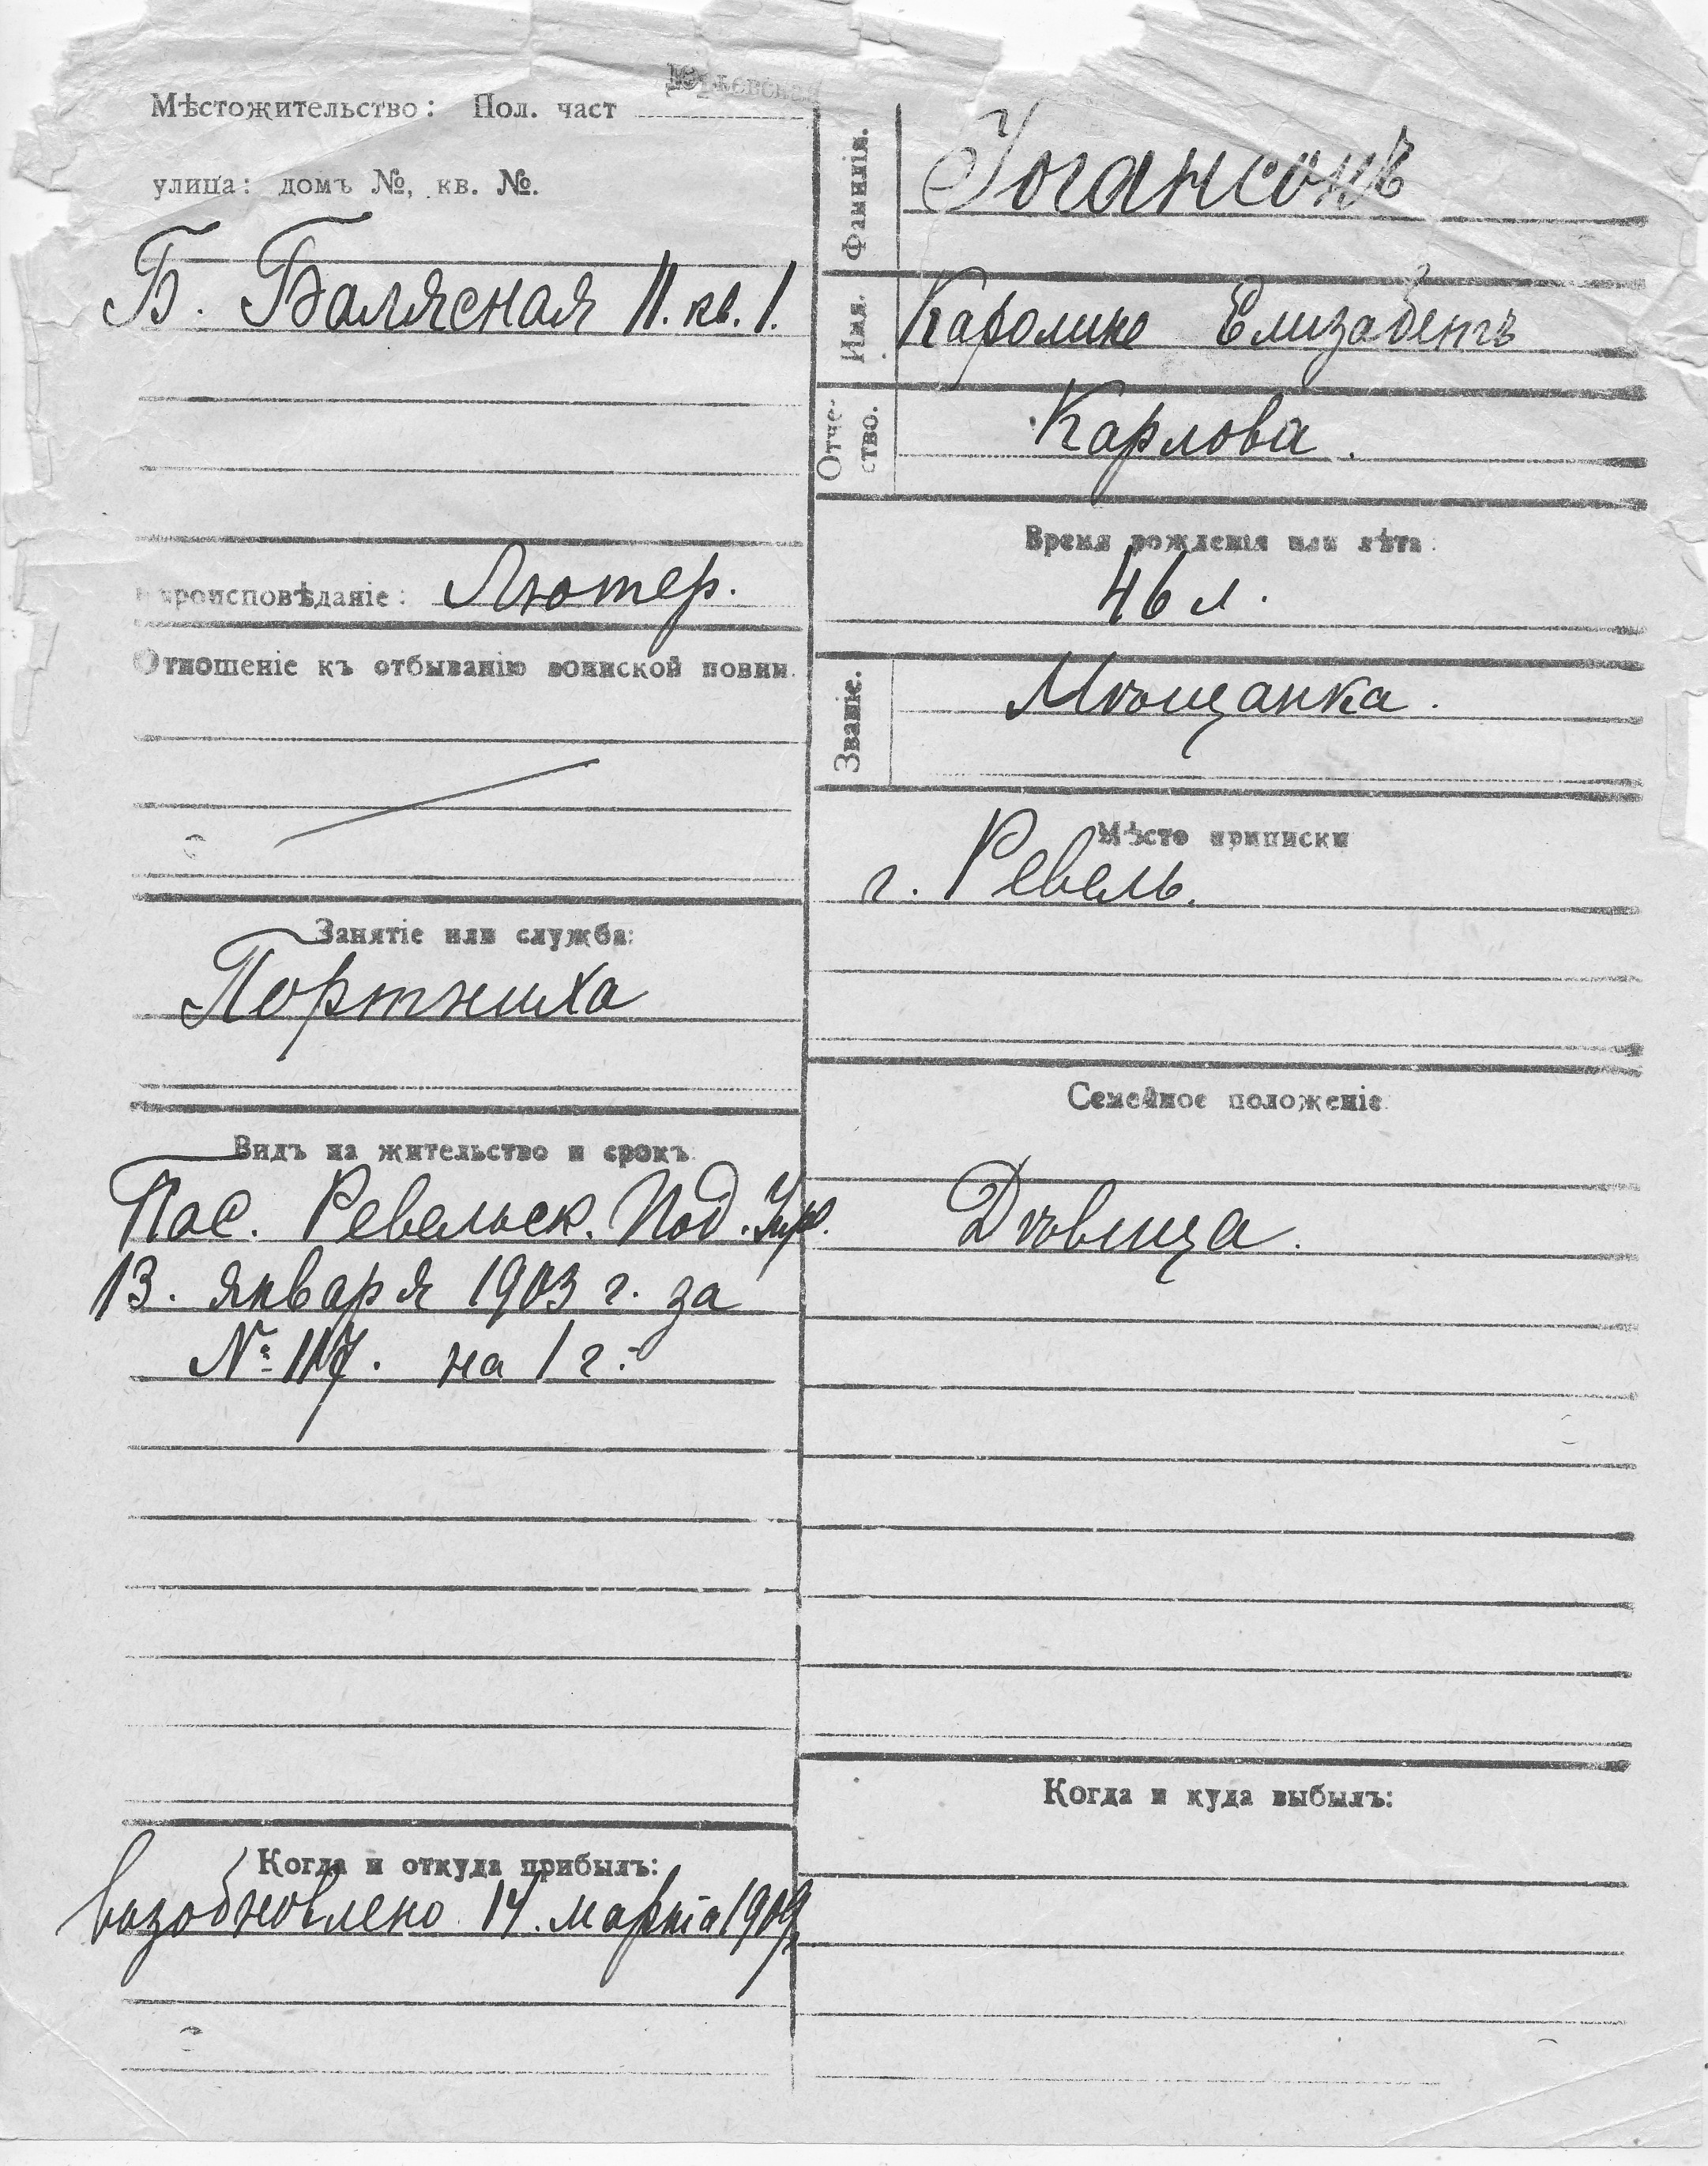 Юрьевская
Мѣстожительство: Пол. част
улица: домъ №, кв. №.
Б. Балясная 11. кв. 1.
Вѣроисповѣданіе: Лютер.
Отношеніе къ отбыванію воинской повин.
Занятіе или служба:
Портниха
Видъ на жительство и срокъ
Пас. Ревельск. Под. Упр.
13. января 1903 г. за
№ 117. на 1 г.
Когда и откуда прибылъ:
возобновлено 14. марта 1909
Фамилія.
Іогансонъ
Имя.
Каролине Елизабетъ
Отче-
ство.
Карлова.
Время рожденія или лѣта
46 л.
Званіе.
Мѣщанка.
Мѣсто приписки
г. Ревель.
Семейное положеніе
Дѣвица.
Когда и куда выбылъ: